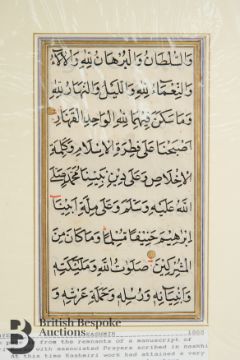 وَالسُّلْطَانُ وَالْبُرْهَانُ لِلّٰهِ وَالْاٰلَاءُ
وَالنَّعْمَاءُ لِلّٰهِ وَاللَّيْلُ وَالنَّهَارُ لِلّٰهِ
وَمَا سَكَنَ فِيْهِمَا لِلّٰهِ الْوَاحِدِ الْقَهَّارِ
اَصْبَحْنَا عَلٰى فِطْرَةِ الْاِسْلَامِ وَكَلِمَةِ
الْاِخْلَاصِ وَعَلٰى دِيْنِ نَبِيِّنَا مُحَمَّدٍ صَلَّى
اللّٰهُ عَلَيْهِ وَسَلَّمَ وَعَلٰى مِلَّةِ اَبِيْنَا
اِبْرٰهِيْمَ حَنِيْفًا مُسْلِمًا وَمَا كَانَ مِنَ
الْمُشْرِكِيْنَ صَلَوٰتُ اللّٰهِ وَمَلٰئِكَتِهٖ
وَاَنْبِيَائِهٖ وَرُسُلِهٖ وَحَمَلَةِ عَرْشِهٖ وَ
KASHMIR 1800
from the remnants of a manuscript of
with associated Prayers scribed in naskhi
At this time Kashmiri work had attained a very
British Bespoke
Auctions